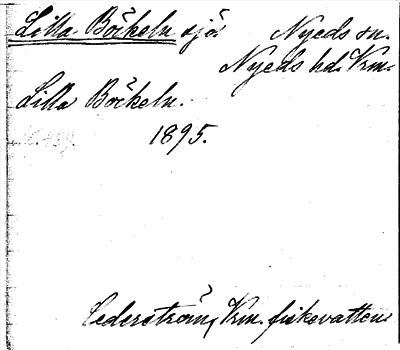 Lilla Böckeln sjö Nyeds sn.
Nyeds hd. Vrm.
Lilla Böckeln.
1895.
Cederström, Vrm. fiskevatten